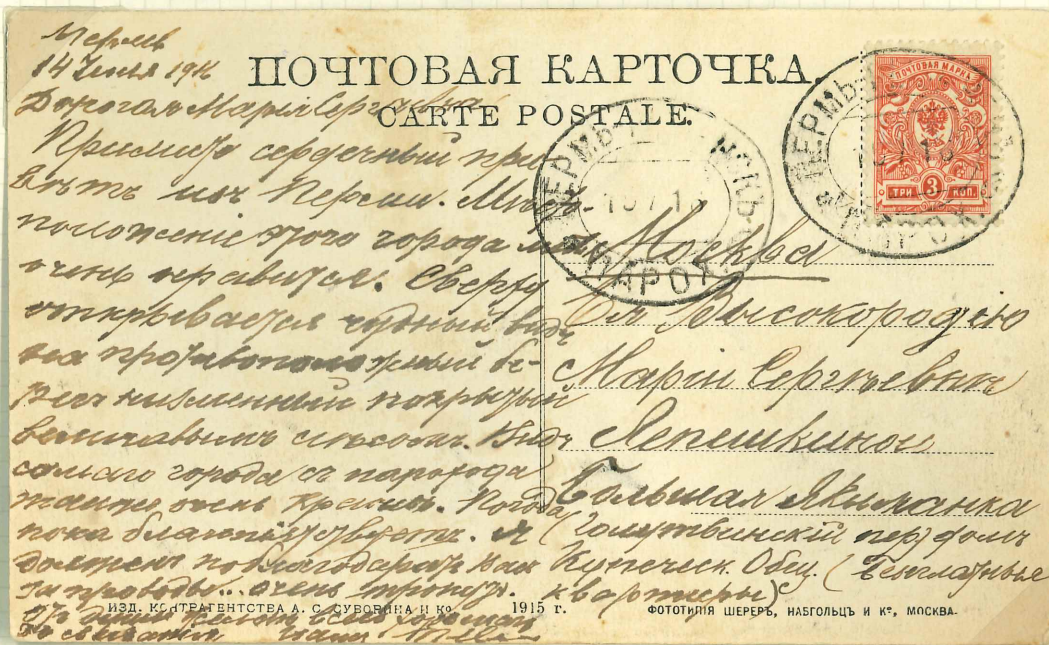 Пермь
14 Іюля 1916
ПОЧТОВАЯ КАРТОЧКА.
CARTE POSTALE.
Дорогая Марія Сергѣевна
Примите сердечный при
вѣтъ изъ Перми. Мнѣ
положеніе этого города
очень нравится. Сверху
открывается чудный видъ
на противоположный бе-
регъ низменный покрытый
величавымъ лѣсомъ. Видъ
самаго города съ парохода
также очень красивъ. Погода
пока благопріятствуетъ. Я
долженъ поблагодарить Вас
за проводы... очень тронутъ.
всего хорошаго
до свиданія
ПОЧТОВАЯ МАРКА
ТРИ 3 КОП.
ПЕРМЬ
ПАРОХ
ПЕРМЬ
ПАРОХ
Москва
Ея Высокородію
Маріи Сергѣевнѣ
Лепешкиной
Большая Якиманка
Голутвинскій пер) домъ
Купеческ. Общ. (Безплатные
квартиры)
ИЗД. КОНТРАГЕНТСТВА А. С. СУВОРИНА И Ко
1915 г.
ФОТОТИПІЯ ШЕРЕРЪ, НАБГОЛЬЦЪ И Ко, МОСКВА.